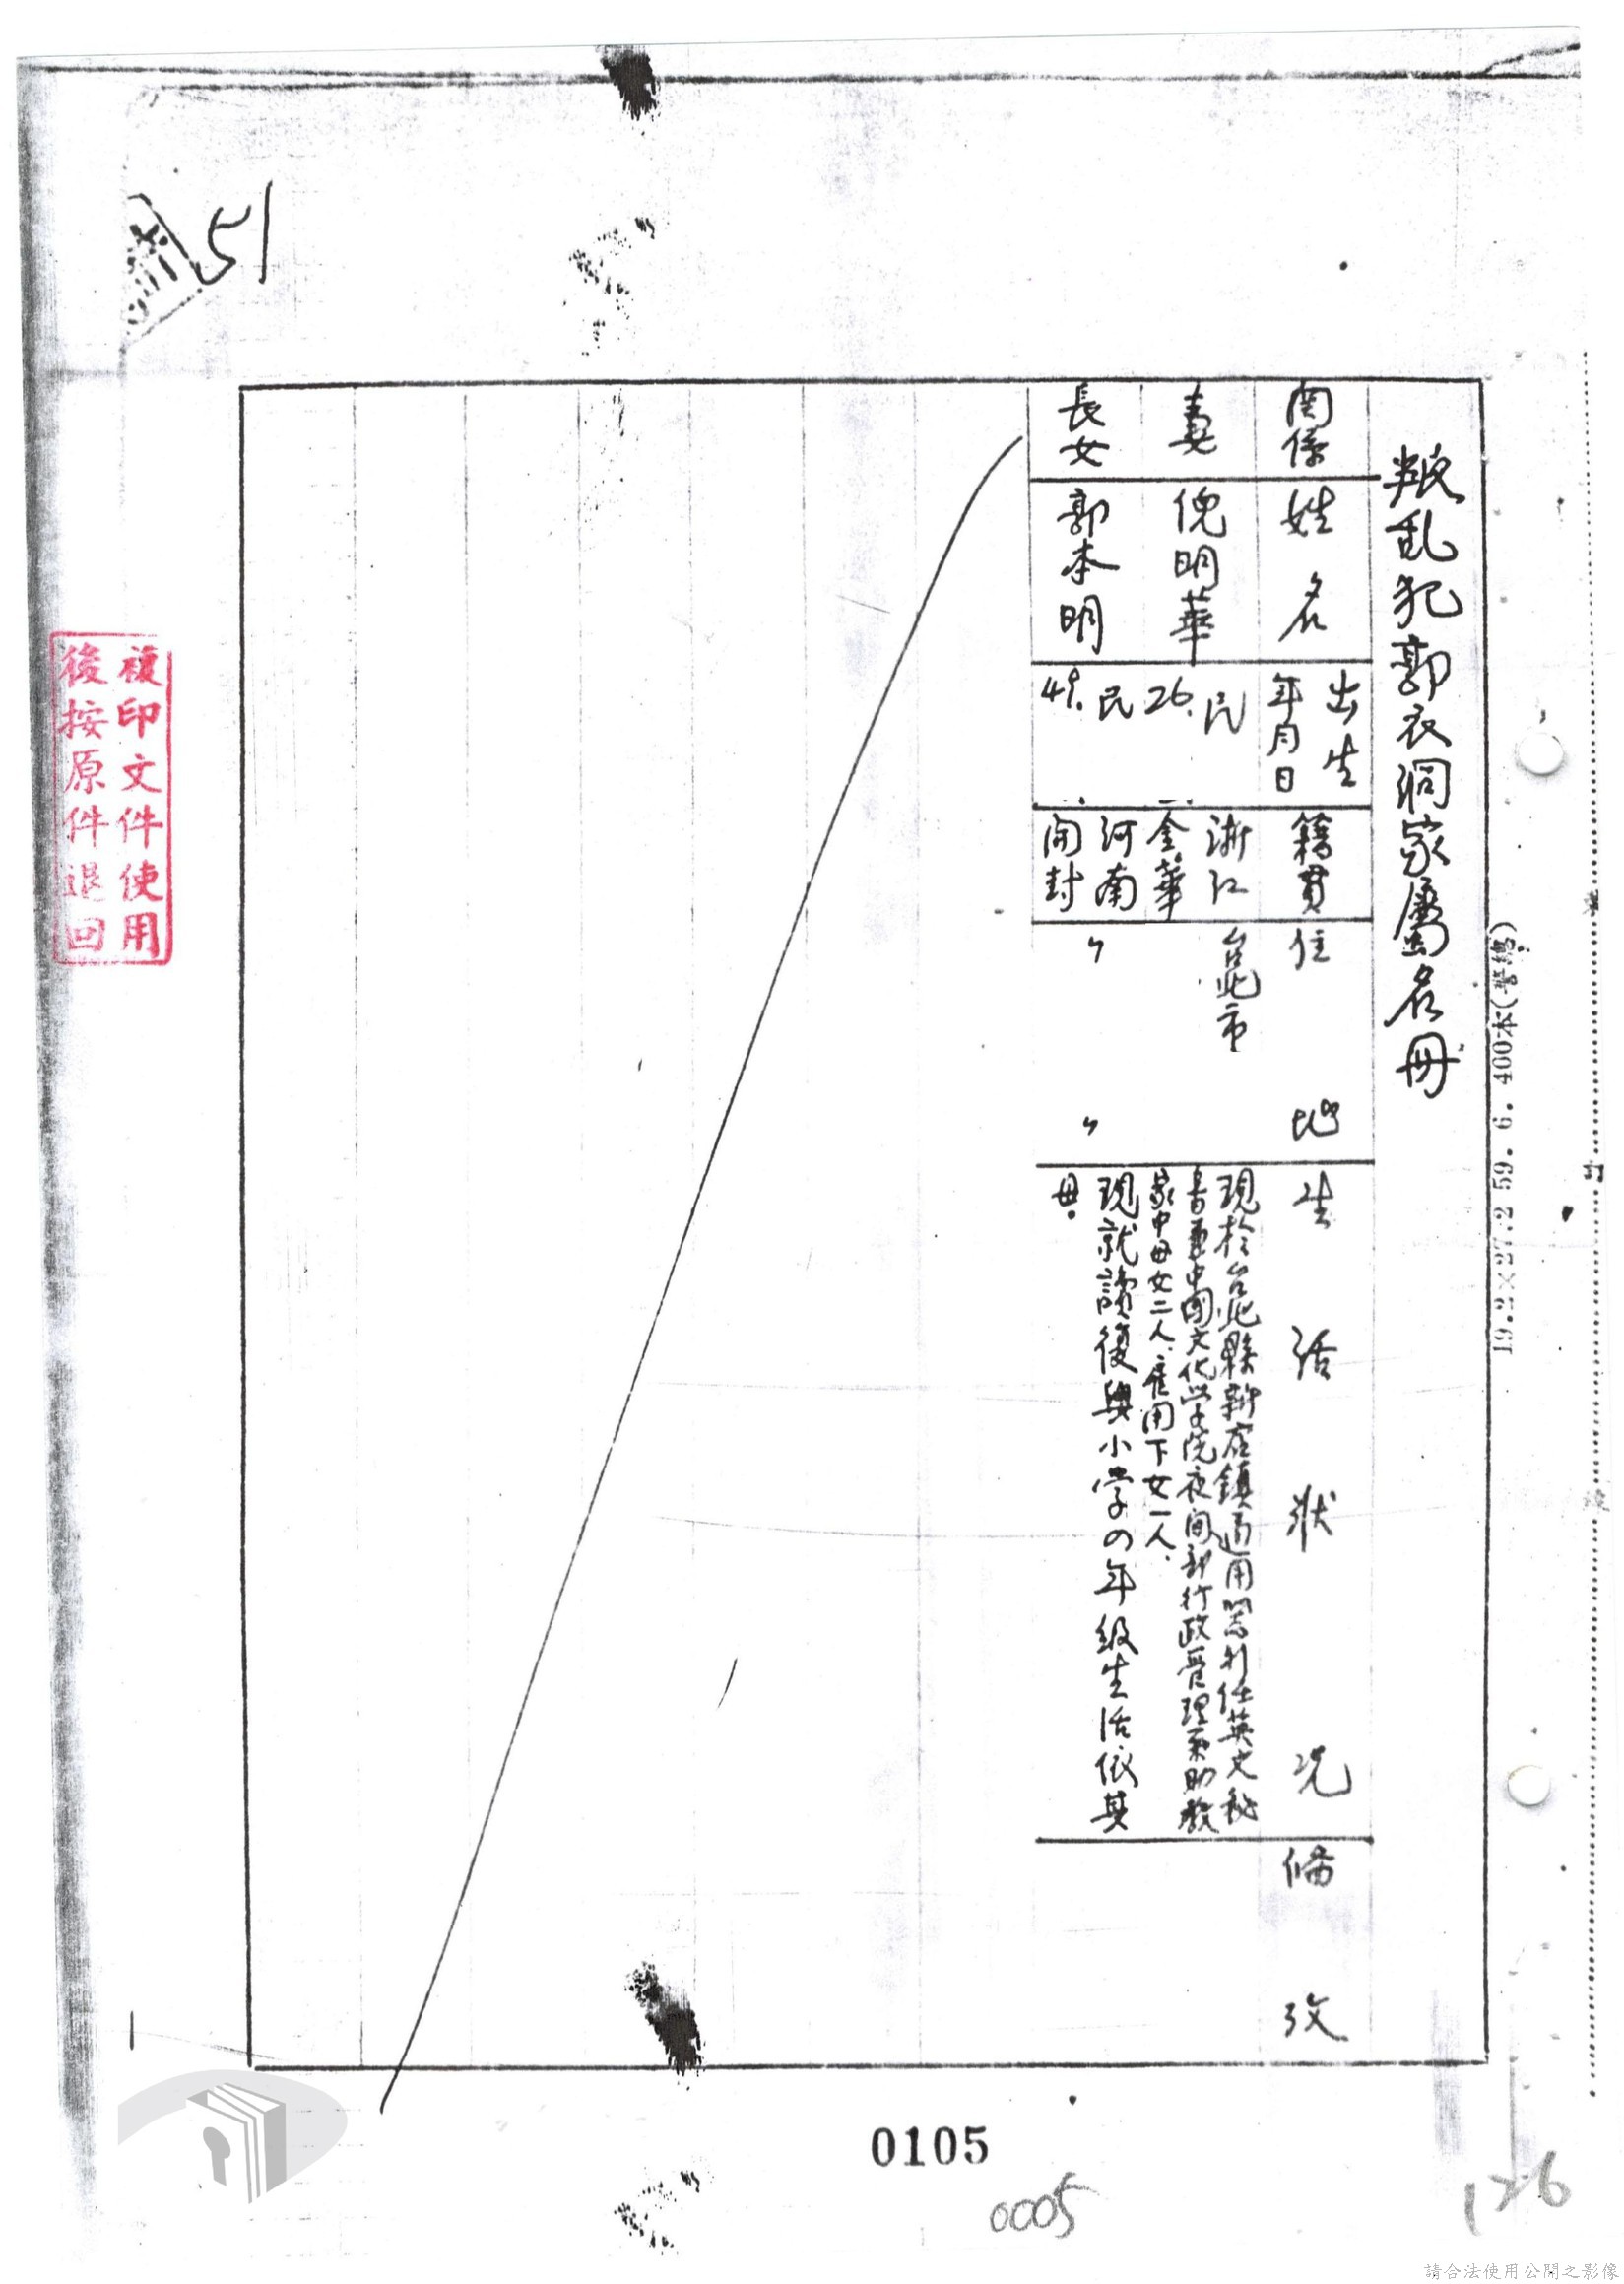 叛乱犯郭衣洞家屬名冊
関係
姓名
出生
年月日
籍貫
住地
生活狀况
俻攷
妻
倪明華
民
26.
浙江
金華
台北市
現於台北縣新店鎮通用器材任英文秘
書兼中國文化学院夜间部行政管理系助教
家中母女二人、雇用下女一人.
長女
郭本明
民
49.
河南
開封
〃
〃
現就讀復興小学の年級生活依其
母。
19.2×27.2 59. 6. 400本(警總)
訂
51
複印文件使用
後按原件退回
0105
0005
126
請合法使用公開之影像